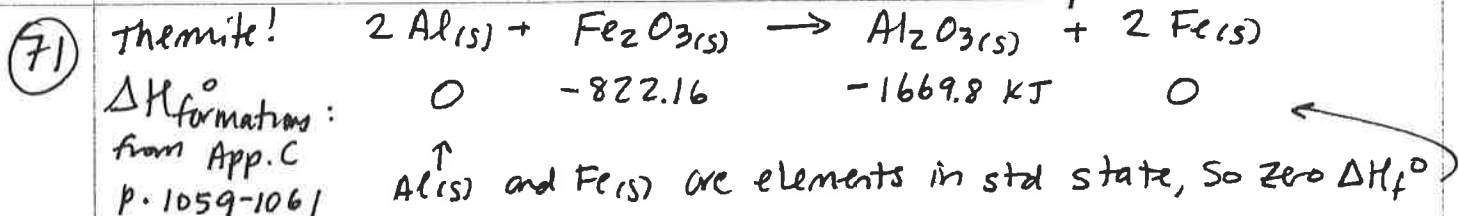 71 Themite! 2 Al(s) + Fe2O3(s) → Al2O3(s) + 2 Fe(s)
ΔH°formations: 0 -822.16 -1669.8 KJ 0
from App. C
p. 1059-1061 ↑ Al(s) and Fe(s) are elements in std state, So zero ΔHf°